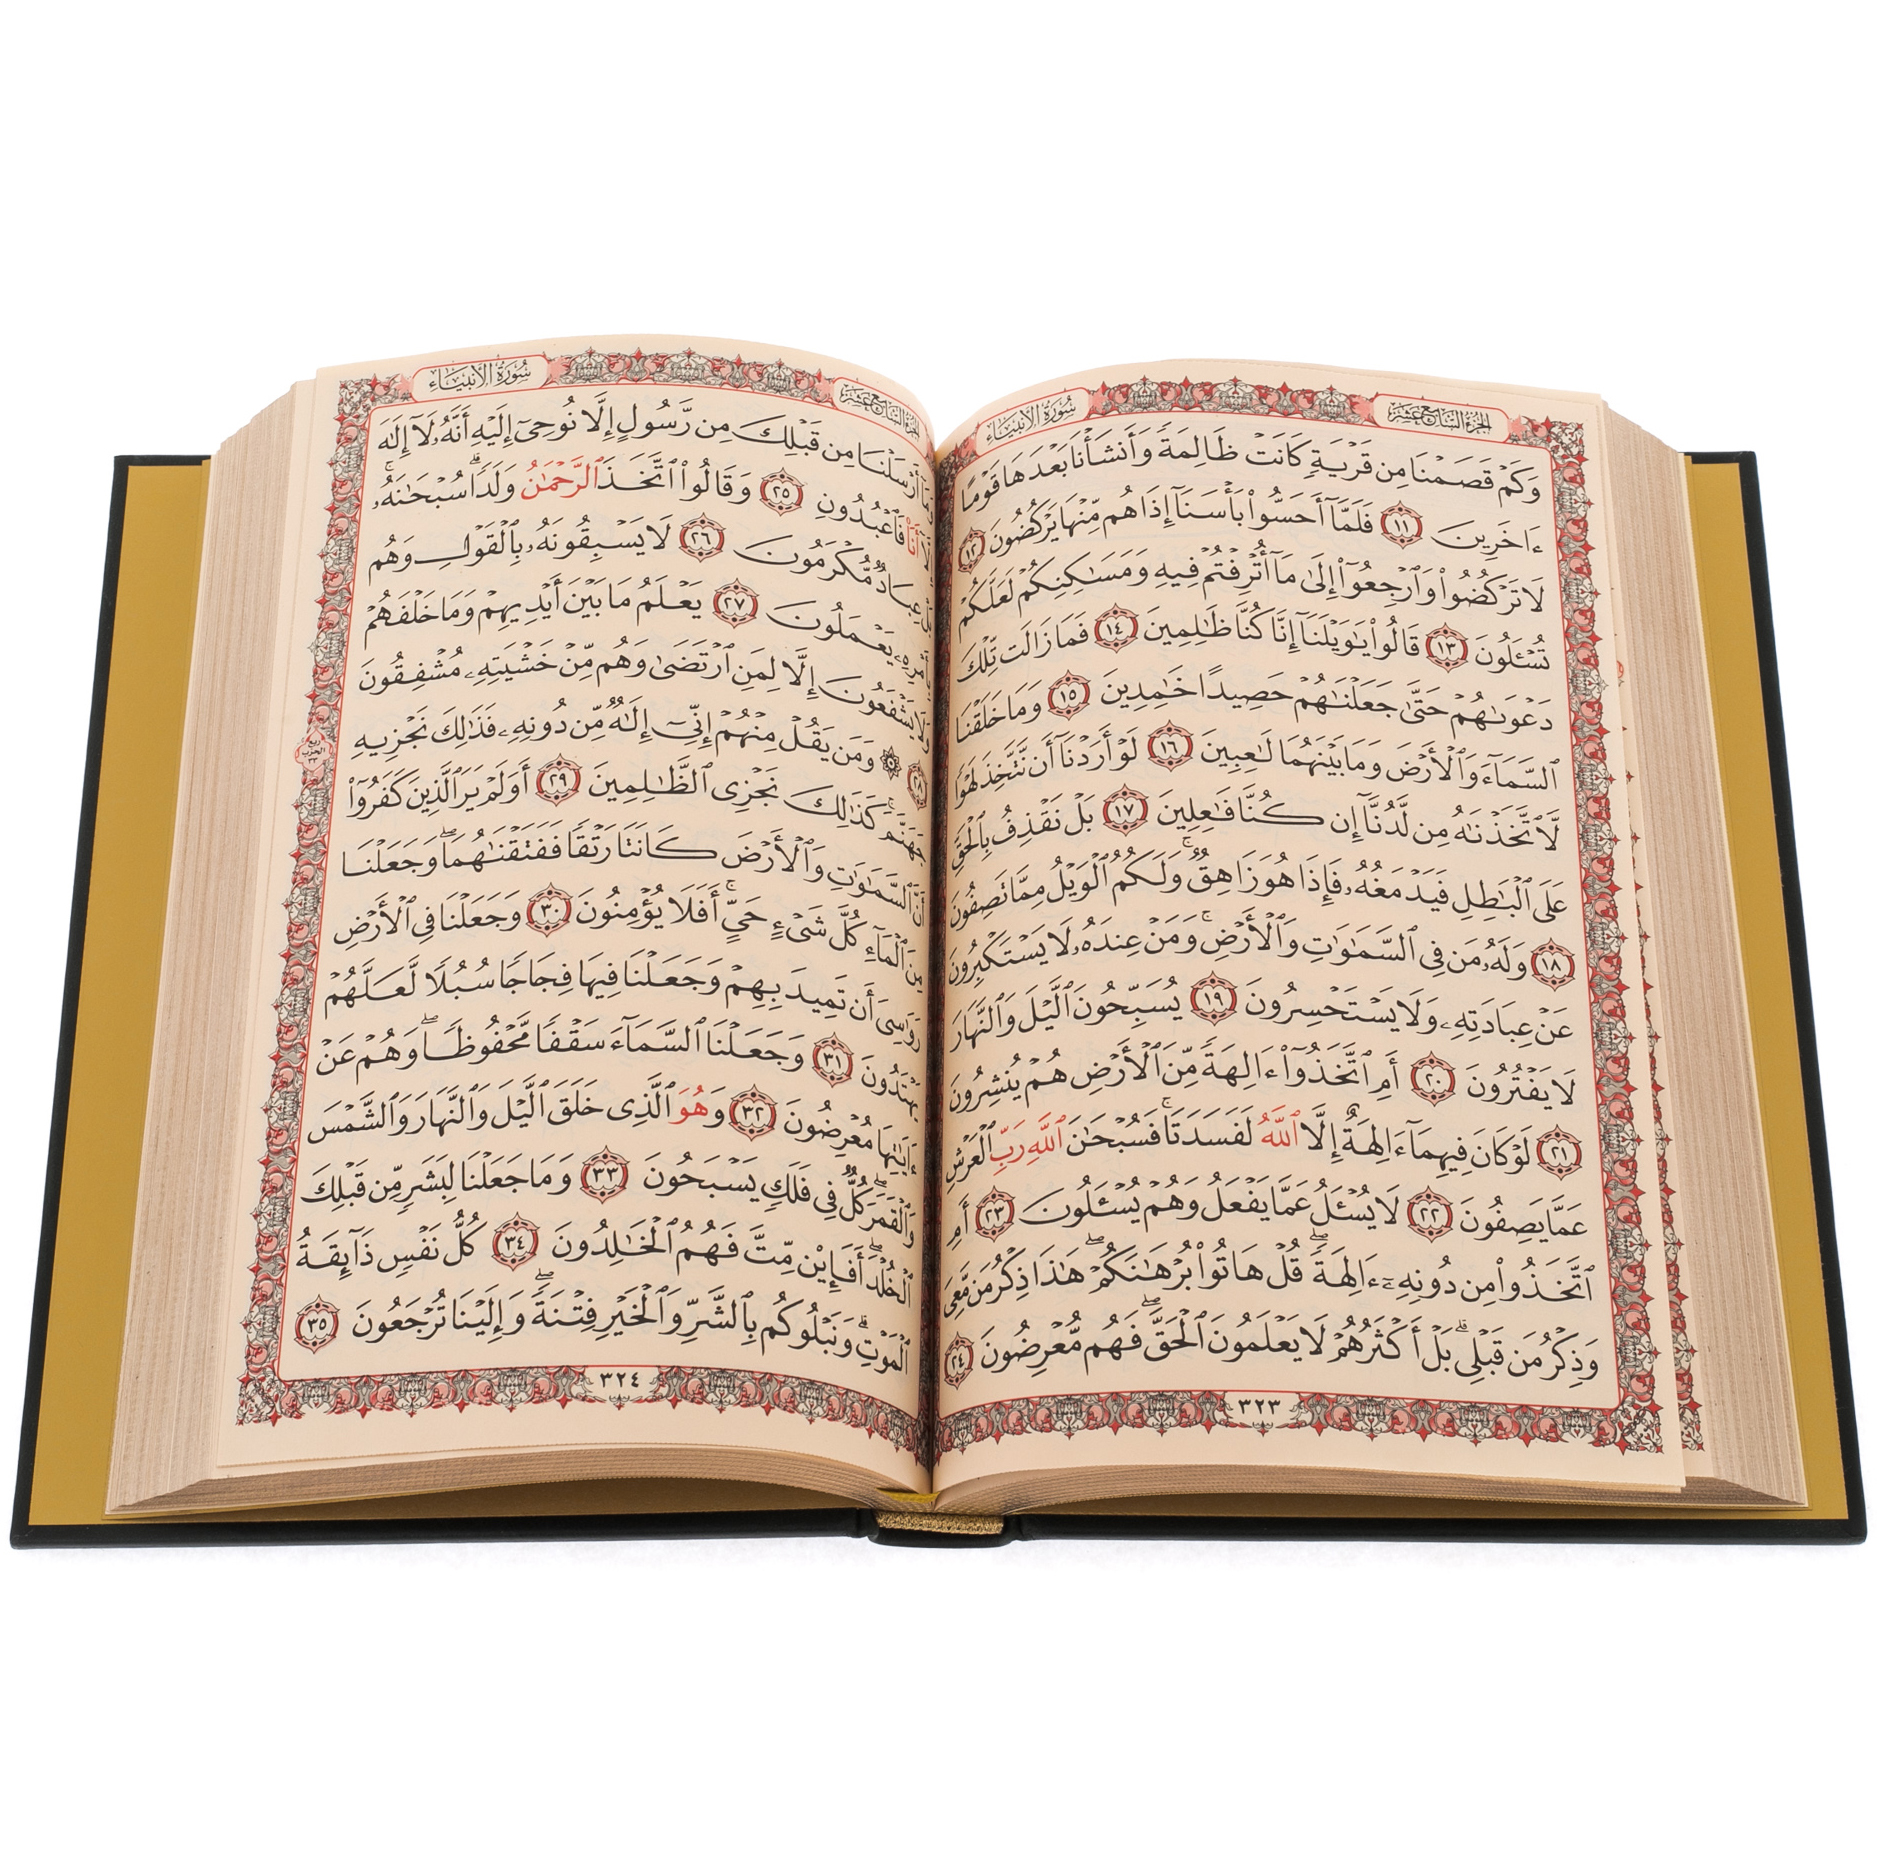 الجزء السابع عشر
سورة الأنبياء
وَكَمْ قَصَمْنَا مِن قَرْيَةٍ كَانَتْ ظَالِمَةً وَأَنشَأْنَا بَعْدَهَا قَوْمًا
ءَاخَرِينَ ١١ فَلَمَّآ أَحَسُّوا۟ بَأْسَنَآ إِذَا هُم مِّنْهَا يَرْكُضُونَ ١٢
لَا تَرْكُضُوا۟ وَٱرْجِعُوٓا۟ إِلَىٰ مَآ أُتْرِفْتُمْ فِيهِ وَمَسَـٰكِنِكُمْ لَعَلَّكُمْ
تُسْـَٔلُونَ ١٣ قَالُوا۟ يَـٰوَيْلَنَآ إِنَّا كُنَّا ظَـٰلِمِينَ ١٤ فَمَا زَالَت تِّلْكَ
دَعْوَىٰهُمْ حَتَّىٰ جَعَلْنَـٰهُمْ حَصِيدًا خَـٰمِدِينَ ١٥ وَمَا خَلَقْنَا
ٱلسَّمَآءَ وَٱلْأَرْضَ وَمَا بَيْنَهُمَا لَـٰعِبِينَ ١٦ لَوْ أَرَدْنَآ أَن نَّتَّخِذَ لَهْوًا
لَّٱتَّخَذْنَـٰهُ مِن لَّدُنَّآ إِن كُنَّا فَـٰعِلِينَ ١٧ بَلْ نَقْذِفُ بِٱلْحَقِّ
عَلَى ٱلْبَـٰطِلِ فَيَدْمَغُهُۥ فَإِذَا هُوَ زَاهِقٌ ۚ وَلَكُمُ ٱلْوَيْلُ مِمَّا تَصِفُونَ
١٨ وَلَهُۥ مَن فِى ٱلسَّمَـٰوَٰتِ وَٱلْأَرْضِ ۚ وَمَنْ عِندَهُۥ لَا يَسْتَكْبِرُونَ
عَنْ عِبَادَتِهِۦ وَلَا يَسْتَحْسِرُونَ ١٩ يُسَبِّحُونَ ٱلَّيْلَ وَٱلنَّهَارَ
لَا يَفْتُرُونَ ٢٠ أَمِ ٱتَّخَذُوٓا۟ ءَالِهَةً مِّنَ ٱلْأَرْضِ هُمْ يُنشِرُونَ
٢١ لَوْ كَانَ فِيهِمَآ ءَالِهَةٌ إِلَّا ٱللَّهُ لَفَسَدَتَا ۚ فَسُبْحَـٰنَ ٱللَّهِ رَبِّ ٱلْعَرْشِ
عَمَّا يَصِفُونَ ٢٢ لَا يُسْـَٔلُ عَمَّا يَفْعَلُ وَهُمْ يُسْـَٔلُونَ ٢٣ أَمِ
ٱتَّخَذُوا۟ مِن دُونِهِۦٓ ءَالِهَةً ۖ قُلْ هَاتُوا۟ بُرْهَـٰنَكُمْ ۖ هَـٰذَا ذِكْرُ مَن مَّعِىَ
وَذِكْرُ مَن قَبْلِى ۗ بَلْ أَكْثَرُهُمْ لَا يَعْلَمُونَ ٱلْحَقَّ ۖ فَهُم مُّعْرِضُونَ ٢٤
٣٢٣
الجزء السابع عشر
سورة الأنبياء
وَمَآ أَرْسَلْنَا مِن قَبْلِكَ مِن رَّسُولٍ إِلَّا نُوحِىٓ إِلَيْهِ أَنَّهُۥ لَآ إِلَـٰهَ
إِلَّآ أَنَا۠ فَٱعْبُدُونِ ٢٥ وَقَالُوا۟ ٱتَّخَذَ ٱلرَّحْمَـٰنُ وَلَدًا ۗ سُبْحَـٰنَهُۥ ۚ
بَلْ عِبَادٌ مُّكْرَمُونَ ٢٦ لَا يَسْبِقُونَهُۥ بِٱلْقَوْلِ وَهُم
بِأَمْرِهِۦ يَعْمَلُونَ ٢٧ يَعْلَمُ مَا بَيْنَ أَيْدِيهِمْ وَمَا خَلْفَهُمْ
وَلَا يَشْفَعُونَ إِلَّا لِمَنِ ٱرْتَضَىٰ وَهُم مِّنْ خَشْيَتِهِۦ مُشْفِقُونَ
٢٨ ۞ وَمَن يَقُلْ مِنْهُمْ إِنِّىٓ إِلَـٰهٌ مِّن دُونِهِۦ فَذَٰلِكَ نَجْزِيهِ
جَهَنَّمَ ۚ كَذَٰلِكَ نَجْزِى ٱلظَّـٰلِمِينَ ٢٩ أَوَلَمْ يَرَ ٱلَّذِينَ كَفَرُوٓا۟
أَنَّ ٱلسَّمَـٰوَٰتِ وَٱلْأَرْضَ كَانَتَا رَتْقًا فَفَتَقْنَـٰهُمَا ۖ وَجَعَلْنَا
مِنَ ٱلْمَآءِ كُلَّ شَىْءٍ حَىٍّ ۖ أَفَلَا يُؤْمِنُونَ ٣٠ وَجَعَلْنَا فِى ٱلْأَرْضِ
رَوَٰسِىَ أَن تَمِيدَ بِهِمْ وَجَعَلْنَا فِيهَا فِجَاجًا سُبُلًا لَّعَلَّهُمْ
يَهْتَدُونَ ٣١ وَجَعَلْنَا ٱلسَّمَآءَ سَقْفًا مَّحْفُوظًا ۖ وَهُمْ عَنْ
ءَايَـٰتِهَا مُعْرِضُونَ ٣٢ وَهُوَ ٱلَّذِى خَلَقَ ٱلَّيْلَ وَٱلنَّهَارَ وَٱلشَّمْسَ
وَٱلْقَمَرَ ۖ كُلٌّ فِى فَلَكٍ يَسْبَحُونَ ٣٣ وَمَا جَعَلْنَا لِبَشَرٍ مِّن قَبْلِكَ
ٱلْخُلْدَ ۖ أَفَإِي۟ن مِّتَّ فَهُمُ ٱلْخَـٰلِدُونَ ٣٤ كُلُّ نَفْسٍ ذَآئِقَةُ
ٱلْمَوْتِ ۗ وَنَبْلُوكُم بِٱلشَّرِّ وَٱلْخَيْرِ فِتْنَةً ۖ وَإِلَيْنَا تُرْجَعُونَ ٣٥
ربع
الحزب
٣٣
٣٢٤